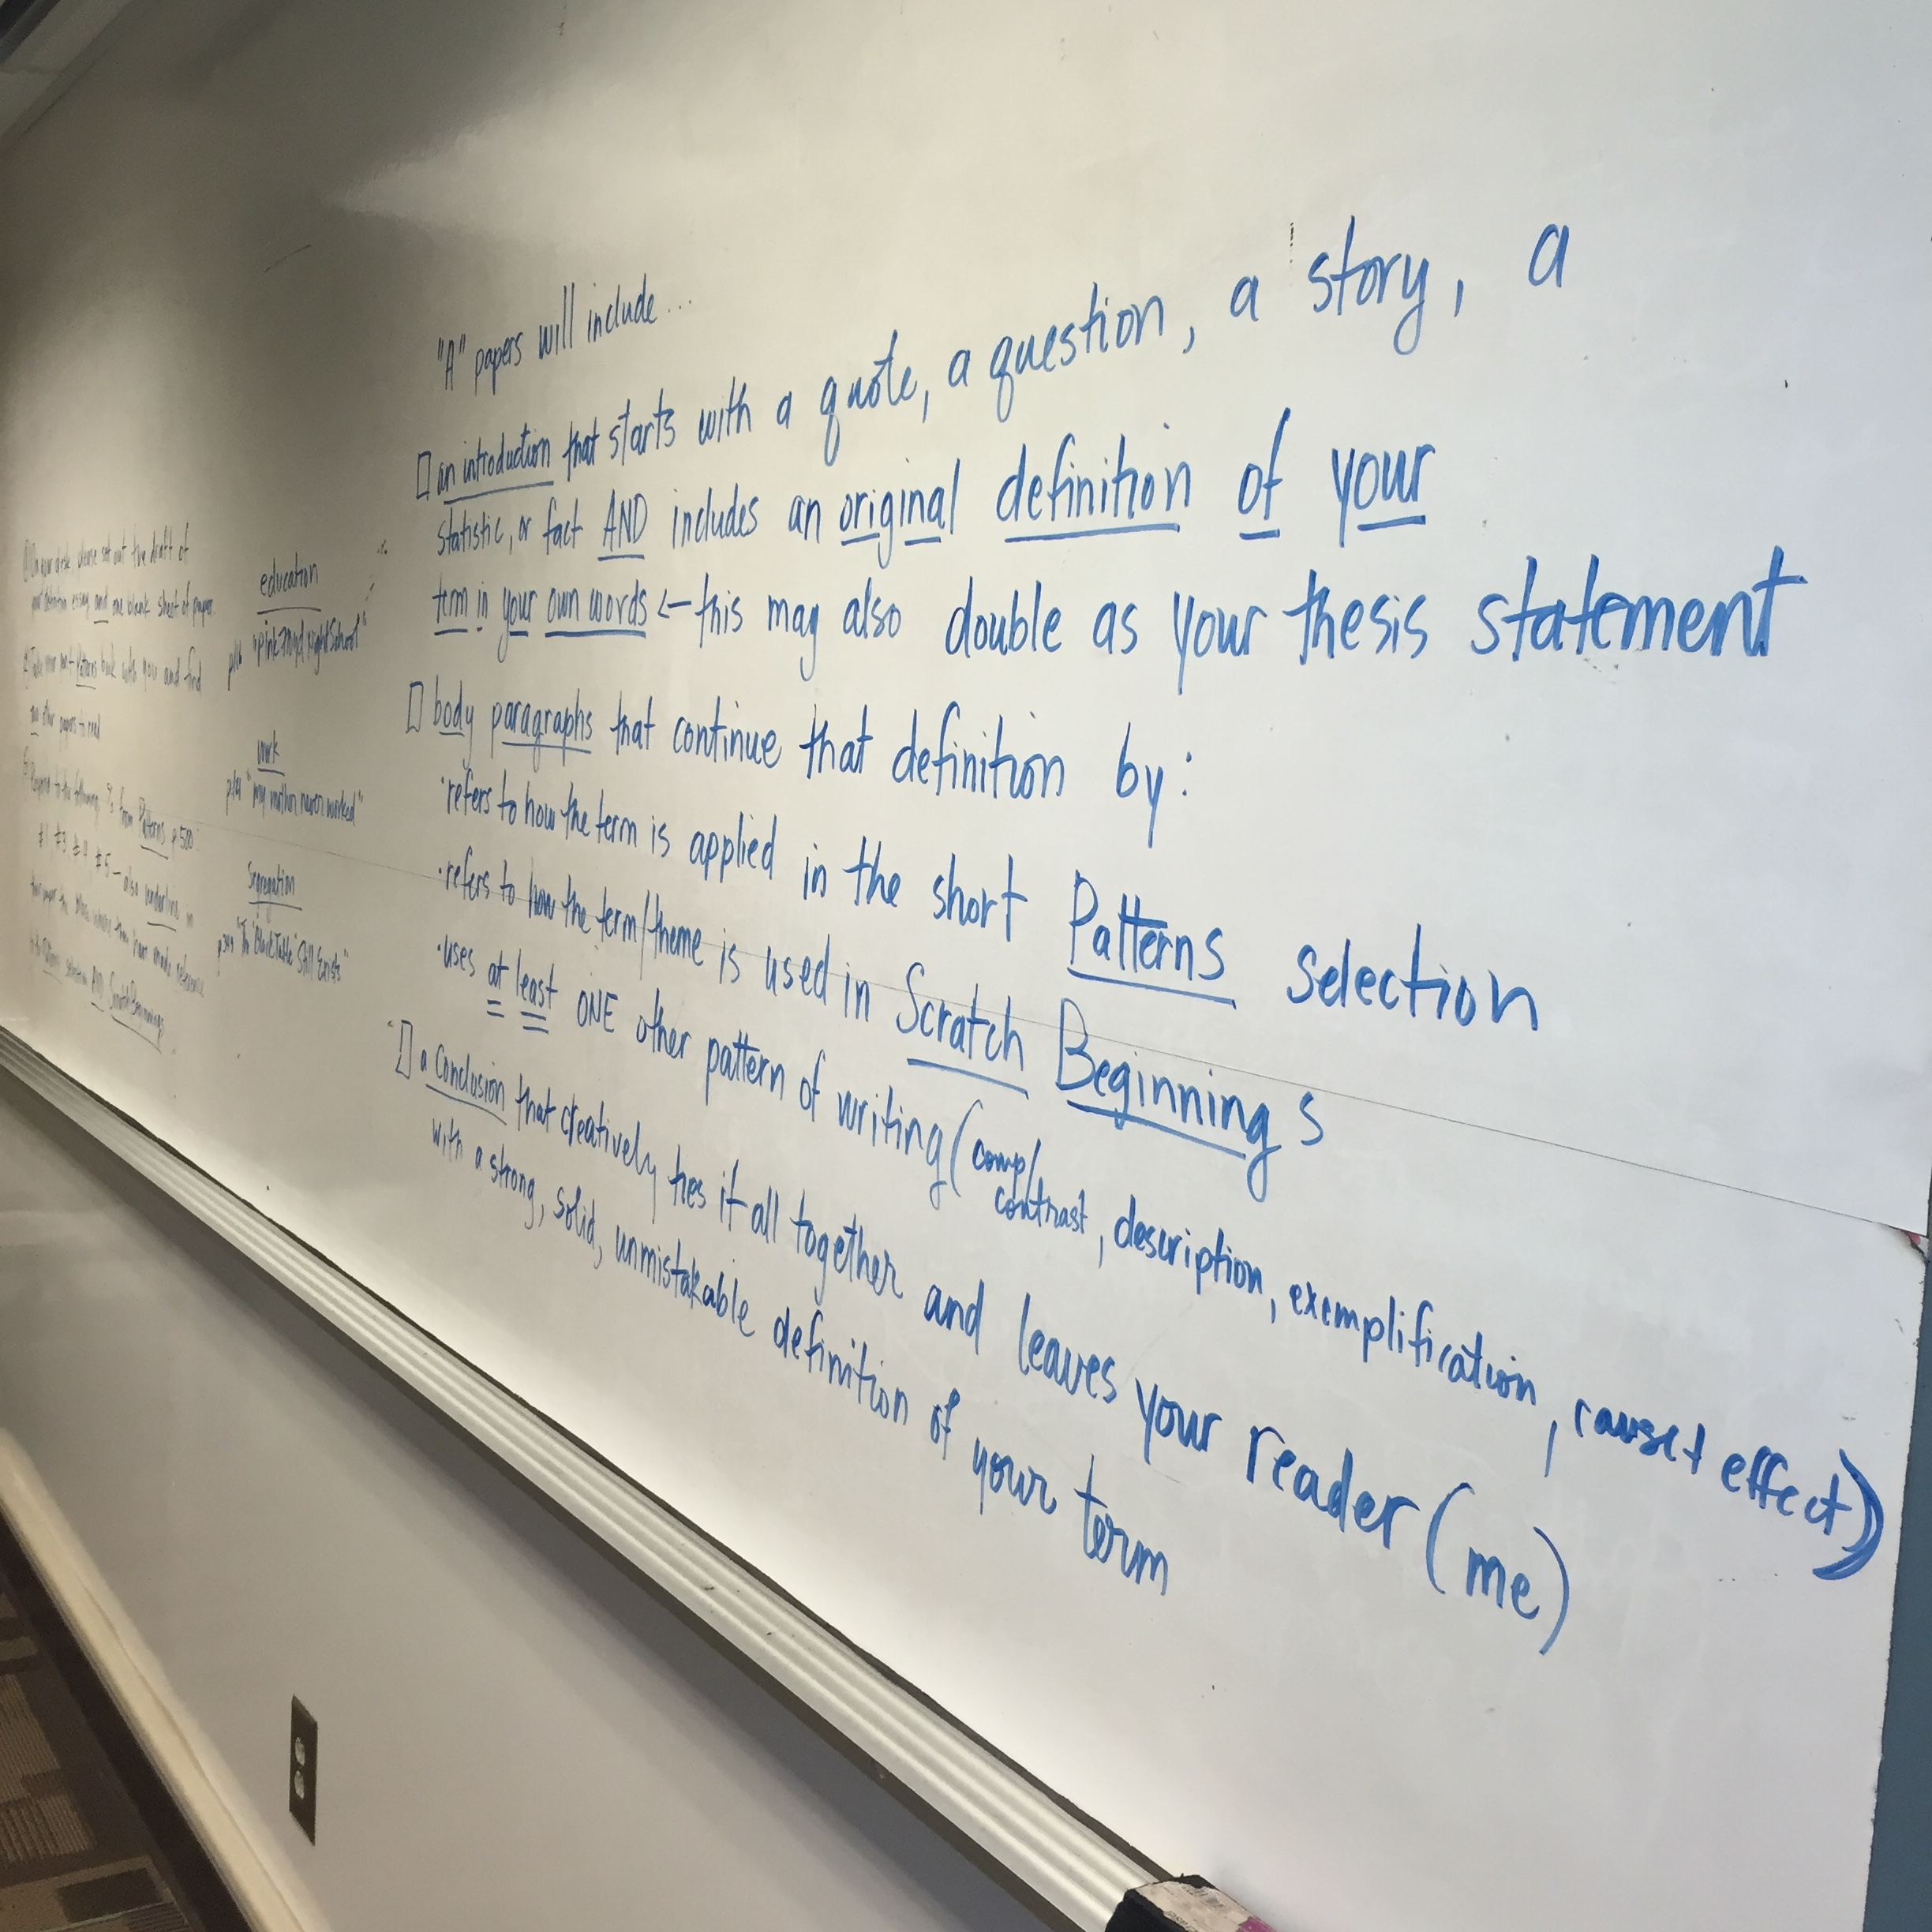 "A" papers will include...
□ an introduction that starts with a quote, a question, a story, a
statistic, or fact AND includes an original definition of your
term in your own words ← this may also double as your thesis statement
□ body paragraphs that continue that definition by:
·refers to how the term is applied in the short Patterns selection
·refers to how the term/theme is used in Scratch Beginnings
·uses at least ONE other pattern of writing (comp/
contrast, description, exemplification, cause + effect)
□ a conclusion that creatively ties it all together and leaves your reader (me)
with a strong, solid, unmistakable definition of your term
education
School"
work
"my mother never worked"
Segregation
"The 'Black Table' Still Exists"
please set out the draft of
your definition essay and one blank sheet of paper
book with you and find
other papers to read
to the following ?s from Patterns p 500:
#1 #3 #4 #5 – also underline in
Scratch Beginnings